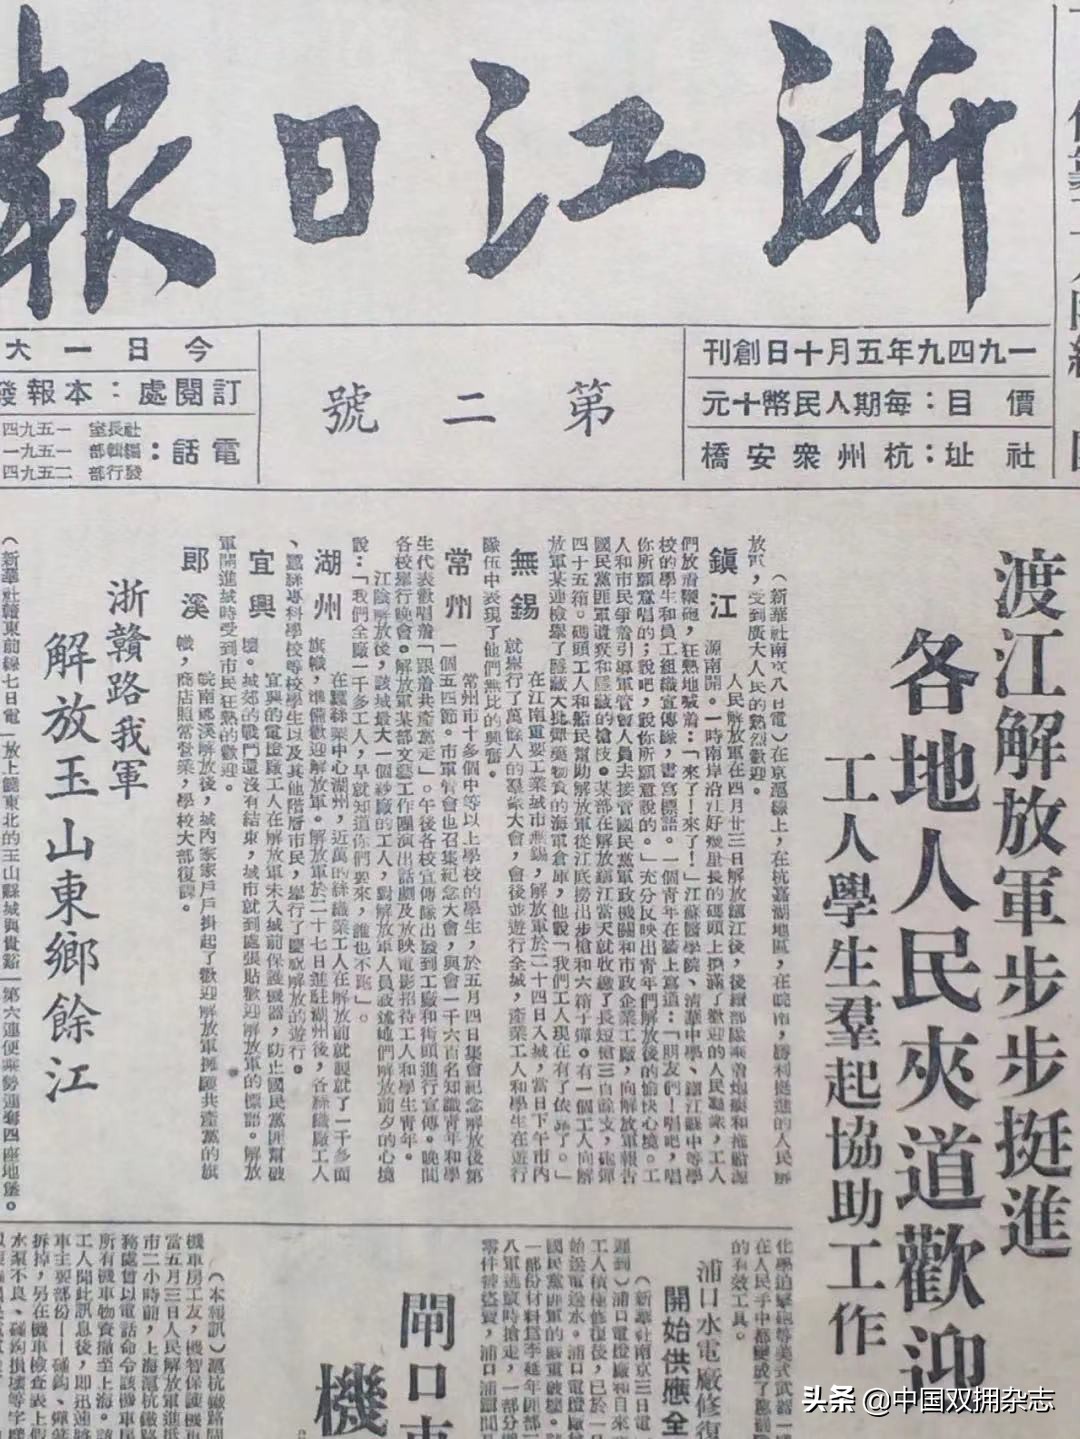 浙江日報
一九四九年五月十日創刊
價目：每期人民幣十元
社址：杭州眾安橋
第二號
今日一大
訂閱處：本報發
電話：
社長室 一五九四
編輯部 一五九一
發行部 二五九四
渡江解放軍步步挺進
各地人民夾道歡迎
工人學生羣起協助工作
（新華社南京八日電）在京滬線上，在杭嘉湖地區，在皖南，勝利挺進的人民解
放軍，受到廣大人民的熱烈歡迎。
鎮江
人民解放軍在四月廿三日解放鎮江後，後續部隊乘着炮艇和拖船源
源南開。一時南岸沿江好幾里長的碼頭上擠滿了歡迎的人民羣眾，工人
們放着鞭砲，狂熱地喊着：「來了！來了！」江蘇醫學院、清華中學、鎮江蘇中等學
校的學生和員工組織宣傳隊，書寫標語。一個青年在牆上寫道：「朋友們！唱吧，唱
你所願意唱的；說吧，說你所願意說的。」充分反映出青年們解放後的愉快心境。工
人和市民爭着引導軍管會人員去接管國民黨軍政機關和市政企業工廠，向解放軍報告
國民黨匪軍遺棄和隱藏的槍枝。某部在解放鎮江當天就收繳了長短槍三百餘支，砲彈
四十五箱。碼頭工人和船民幫助解放軍從江底撈出步槍和六箱子彈。有一個工人向解
放軍某連檢舉了隱藏大批彈藥物資的海軍倉庫，他說「我們工人現在有了依靠了。」
無錫
在江南重要工業城市無錫，解放軍於二十四日入城，當日下午市內
就舉行了萬餘人的羣眾大會，會後並遊行全城，產業工人和學生在遊行
隊伍中表現了他們無比的興奮。
常州
常州市十多個中等以上學校的學生，於五月四日集會紀念解放後第
一個五四節。市軍管會也召集紀念大會，與會一千六百名知識青年和學
生代表歡唱着「跟着共產黨走」。午後各校宣傳隊出發到工廠和街頭進行宣傳。晚間
各校舉行晚會。解放軍某部文藝工作團演出話劇及放映電影招待工人和學生青年。
江陰解放後，該城最大一個紗廠的工人，對解放軍人員敘述他們解放前夕的心境
說：「我們全廠一千多工人，早就知道你們要來，誰也不跑」。
湖州
在蠶絲業中心湖州，近萬的絲織業工人在解放前就製就了一千多面
旗幟，準備歡迎解放軍。解放軍於二十七日進駐湖州後，各絲織廠工人
、蠶絲專科學校等校學生以及其他階層市民，舉行了慶祝解放的遊行。
宜興
宜興的電燈廠工人在解放軍未入城前保護機器，防止國民黨匪幫破
壞。城郊的戰鬥還沒有結束，城市就到處張貼歡迎解放軍的標語。解放
軍開進城時受到市民狂熱的歡迎。
郎溪
皖南郎溪解放後，城內家家戶戶掛起了歡迎解放軍擁護共產黨的旗
幟，商店照常營業，學校大部復課。
浙贛路我軍
解放玉山東鄉餘江
（新華社贛東前線七日電）放上饒東北的玉山縣城與貴谿
第六連便乘勢連奪四座地堡。
化學迫擊砲等美式武器
在人民手中都變成了
的有效工具。
浦口水電廠修復
開始供應全
（新華社南京三日電
遲到）浦口電燈廠和自來
工人積極修復後，已於一
始送電送水。浦口電燈廠
國民黨匪軍的嚴重破壞。
一部份材料
八軍逃竄時搶走，一部分
零件被盜賣，浦口浦鎮間
閘口
機
（本報訊）滬杭鐵路閘
機車房工友，機智保護機
當五月三日人民解放軍進抵
市二小時前，上海滬杭鐵
務處曾以電話命令該機車房
所有機車物資撤至上海。該
工人聞此訊息後，即迅速將
車主要部份——碰鈎、彈簧
拆掉，另在機車檢查表上
水泵不良、碰鈎損壞等字
头条 @中国双拥杂志